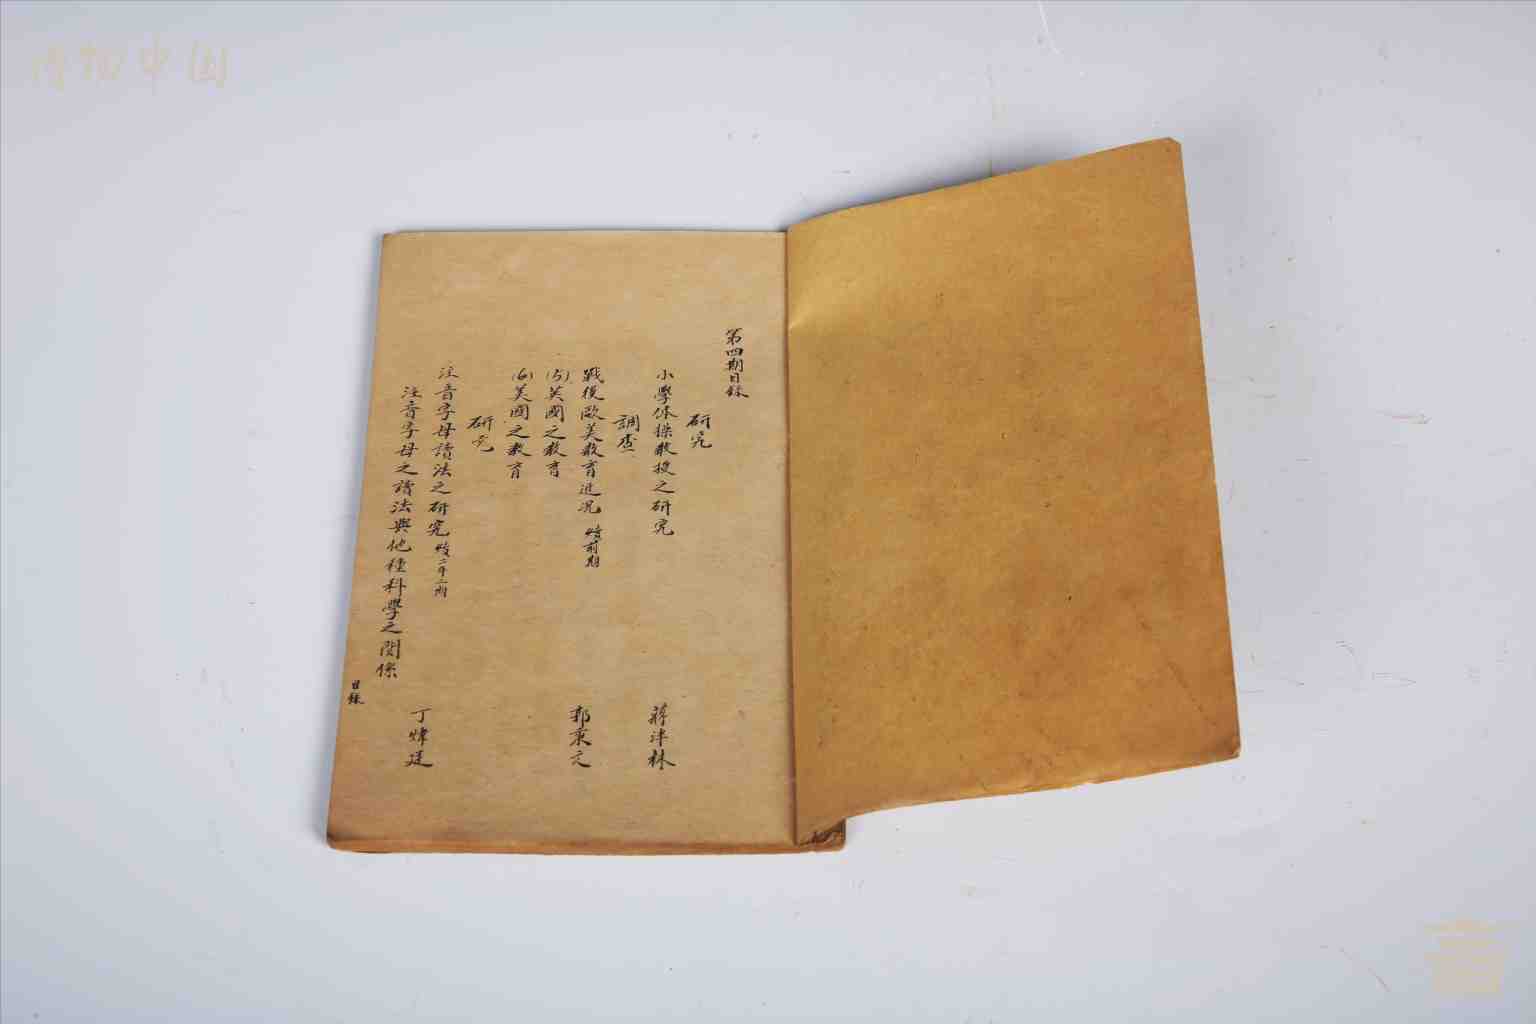 第四期目錄
研究
小學体操教授之研究 蔣津林
調查
戰後歐美教育近况 續前期 郭秉之
(5)英國之教育
(6)美國之教育
研究
注音字母讀法之研究 續二年二期
注音字母之讀法與他種科學之関係 丁煒廷
目錄
博物中国